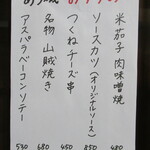 米茄子肉味噌焼
ソースカツ(オリジナルソース)
つくねチーズ串
名物山賊焼き
アスパラベーコンソテー
480
850
450
680
530